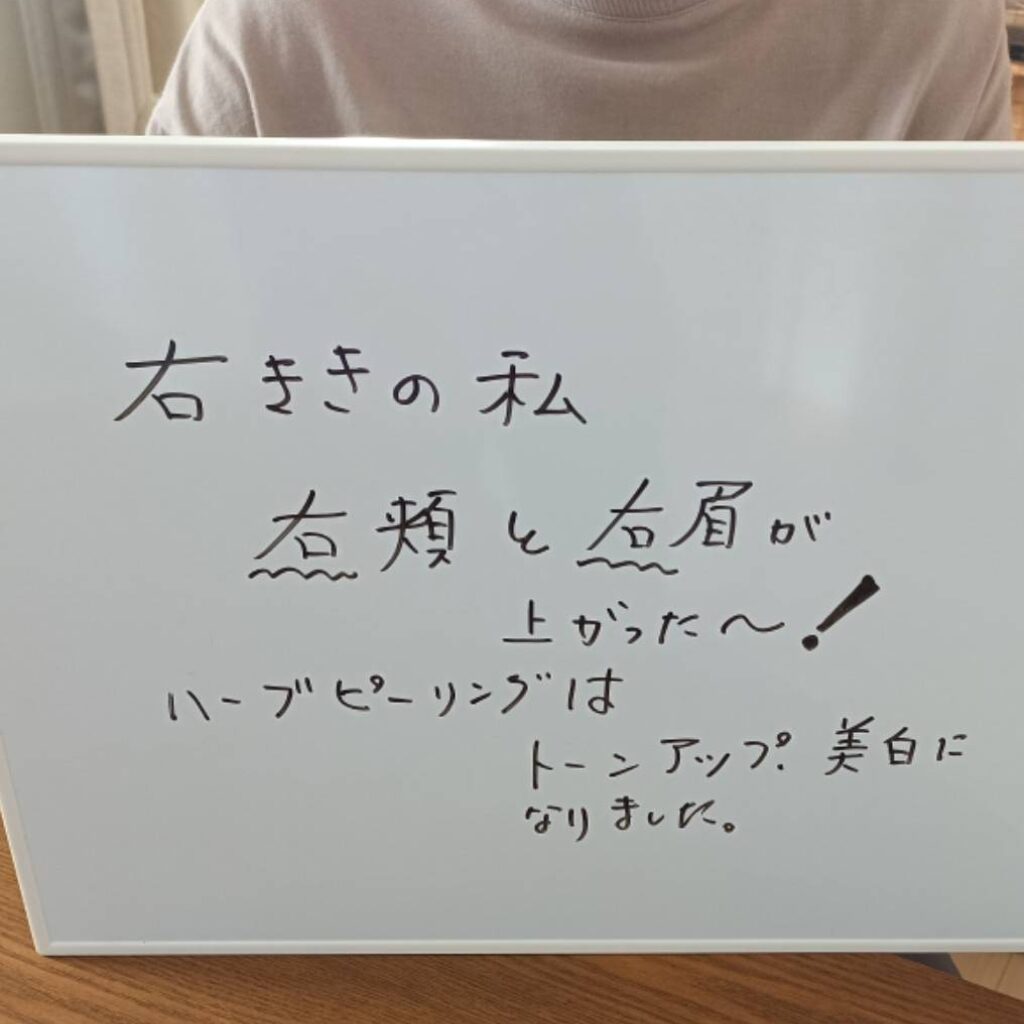 右ききの私
右頬と右眉が
上がった〜!
ハーブピーリングは
トーンアップ. 美白に
なりました。